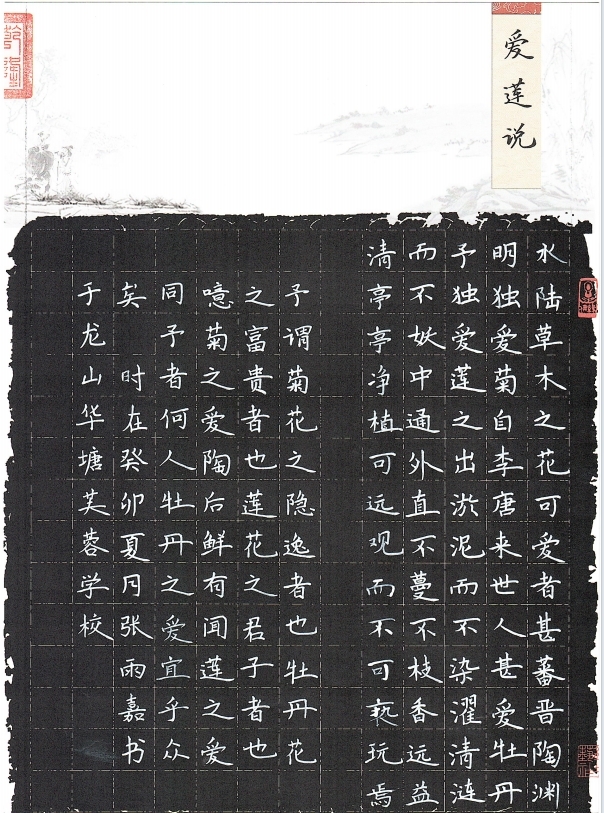 爱莲说
水陆草木之花可爱者甚蕃晋陶渊
明独爱菊自李唐来世人甚爱牡丹
予独爱莲之出淤泥而不染濯清涟
而不妖中通外直不蔓不枝香远益
清亭亭净植可远观而不可亵玩焉
予谓菊花之隐逸者也牡丹花
之富贵者也莲花之君子者也
噫菊之爱陶后鲜有闻莲之爱
同予者何人牡丹之爱宜乎众
矣 时在癸卯夏月张雨嘉书
于龙山华塘芙蓉学校